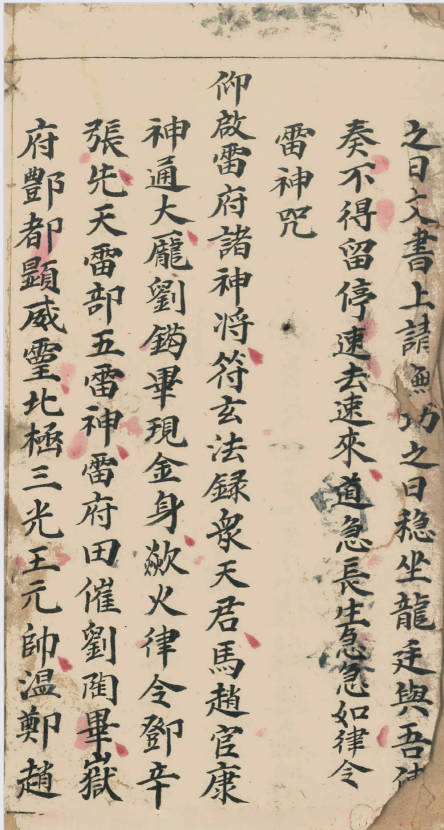 之日文書上請 功之日稳坐龍廷與吾
奏不得留停速去速來道急長生急急如律令
雷神咒
仰啟雷府諸神将符玄法録衆天君馬趙官康
神通大龐劉鈎畢現金身歘火律令鄧辛
張先天雷部五雷神雷府田催劉陶畢嶽
府酆都顯威靈北極三光王元帥温鄭趙